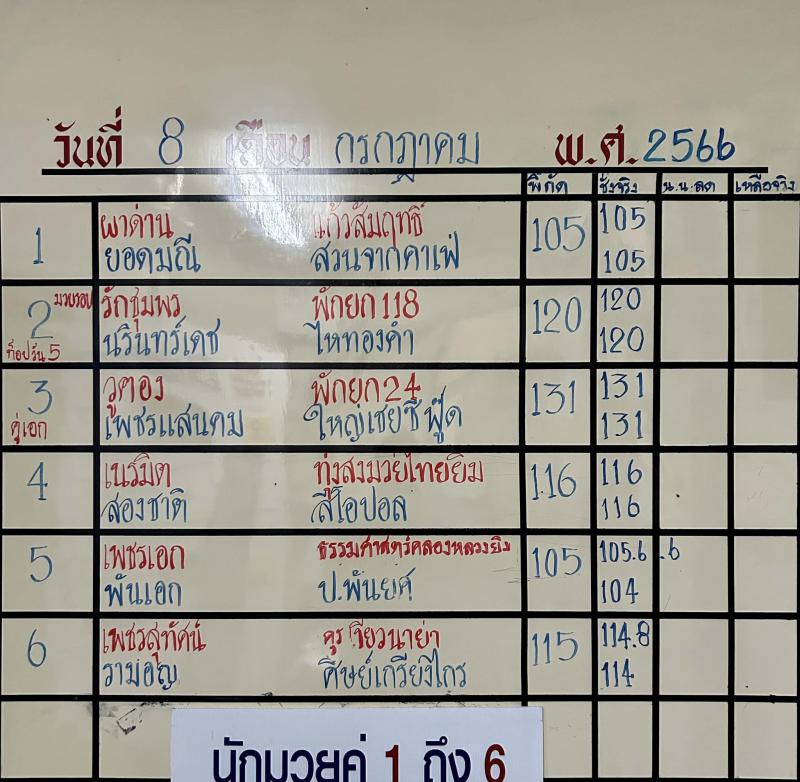 วันที่ 8 เดือน กรกฎาคม พ.ศ. 2566
พิกัด ชั่งจริง น.น.ลด เหลือจริง
1 ผาด่าน แก้วสัมฤทธิ์ 105 105
ยอดมณี สวนจากคาเฟ่ 105
2 มวยรอบ รักชุมพร พักยก 118 120 120
ท็อปวัน 5 นรินทร์เดช ไหทองคำ 120
3 วูตอง พักยก 24 131 131
คู่เอก เพชรแสนคม ใหญ่เชยซีฟู๊ด 131
4 เนรมิต ทุ่งสงมวยไทยยิม 116 116
สองชาติ สีโอปอล 116
5 เพชรเอก ธรรมศาสตร์คลองหลวงยิม 105 105.6 .6
พันเอก ป.พันยศ 104
6 เพชรสุทัศน์ 115 114.8
รามอญ ศิษย์เกรียงไกร 114
นักมวยคู่ 1 ถึง 6